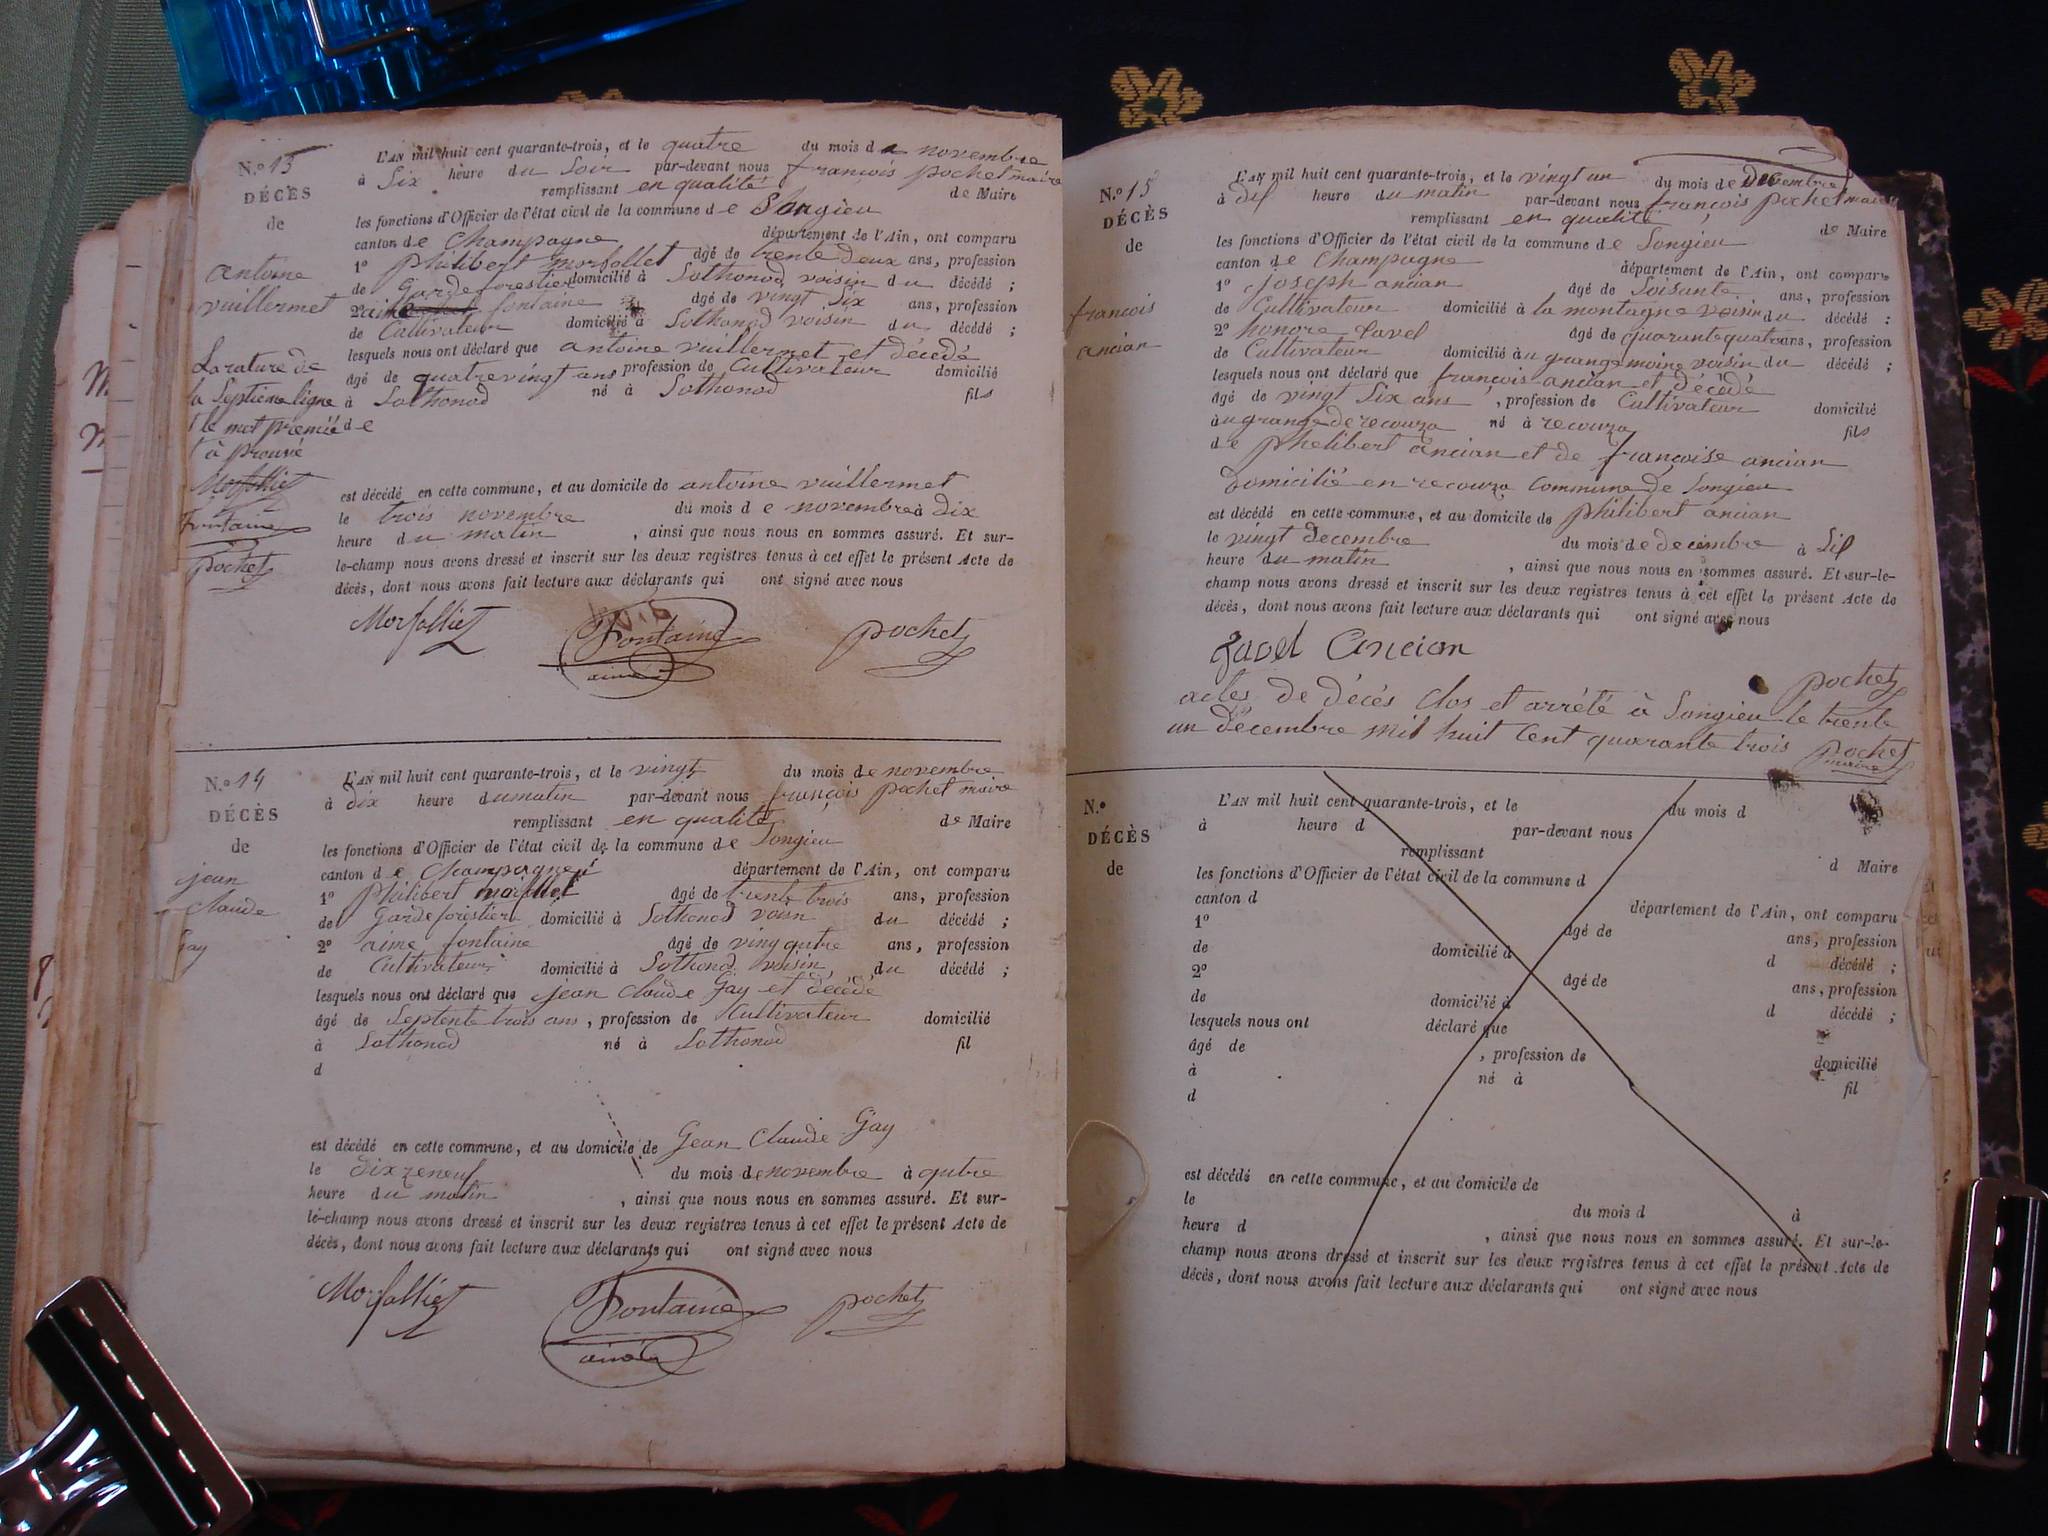 N.º 13
DÉCÈS
de
antoine
vuillermet
La rature de
la Septieme ligne
le mot premié
à prouvé
Morfolliet
Fontaine
Pochet
L'AN mil huit cent quarante-trois, et le quatre du mois de novembre
à Six heure du Soir par-devant nous françois pochet maire
remplissant en qualité de Maire
les fonctions d'Officier de l'état civil de la commune de Songieu
canton de Champagne département de l'Ain, ont comparu
1º philibert morfollet âgé de trente deux ans, profession
de Garde forestier domicilié à Sothonod voisin du décédé ;
2º aimé fontaine âgé de vingt Six ans, profession
de Cultivateur domicilié à Sothonod voisin du décédé ;
lesquels nous ont déclaré que antoine vuillermet et décédé
âgé de quatre vingt ans profession de Cultivateur domicilié
à Sothonod né à Sothonod fils
de
est décédé en cette commune, et au domicile de antoine vuillermet
le trois novembre du mois de novembre à dix
heure du matin , ainsi que nous nous en sommes assuré. Et sur-
le-champ nous avons dressé et inscrit sur les deux registres tenus à cet effet le présent Acte de
décès, dont nous avons fait lecture aux déclarants qui ont signé avec nous
Morfolliet Fontaine pochet
aimé
N.º 14
DÉCÈS
de
jean
Claude
Gay
L'AN mil huit cent quarante-trois, et le vingt du mois de novembre
à dix heure du matin par-devant nous françois pochet maire
remplissant en qualité de Maire
les fonctions d'Officier de l'état civil de la commune de Songieu
canton de Champagne département de l'Ain, ont comparu
1º philibert morfollet âgé de trente trois ans, profession
de Garde forestier domicilié à Sothonod voisn du décédé ;
2º aime fontaine âgé de ving qutre ans, profession
de Cultivateur domicilié à Sothonod voisin du décédé ;
lesquels nous ont déclaré que jean Claude Gay et décédé
âgé de Septente trois ans , profession de Cultivateur domicilié
à Sothonod né à Sothonod fil
d
est décédé en cette commune, et au domicile de Gean Claude Gay
le dixzeneuf du mois de novembre à qutre
heure du matin , ainsi que nous nous en sommes assuré. Et sur-
le-champ nous avons dressé et inscrit sur les deux registres tenus à cet effet le présent Acte de
décès, dont nous avons fait lecture aux déclarants qui ont signé avec nous
Morfolliet Fontaine pochet
aimé
N.º 15
DÉCÈS
de
francois
ancian
L'AN mil huit cent quarante-trois, et le vingt un du mois de Décembre
à dix heure du matin par-devant nous françois pochet maire
remplissant en qualité de Maire
les fonctions d'Officier de l'état civil de la commune de Songieu
canton de Champagne département de l'Ain, ont comparu
1º joseph ancian âgé de Soisante ans, profession
de Cultivateur domicilié à la montagne voisin du décédé ;
2º honore Javel âgé de quarante quatre ans, profession
de Cultivateur domicilié à u grange moine voisin du décédé ;
lesquels nous ont déclaré que françois ancian et décédé
âgé de vingt Six ans , profession de Cultivateur domicilié
à u grange de recourza né à recourza fils
de phelibert ancian et de françoise ancian
domicilié en recourza Commune de Songieu
est décédé en cette commune, et au domicile de philibert ancian
le vingt decembre du mois de decembre à Six
heure du matin , ainsi que nous nous en sommes assuré. Et sur-le-
champ nous avons dressé et inscrit sur les deux registres tenus à cet effet le présent Acte de
décès, dont nous avons fait lecture aux déclarants qui ont signé avec nous
Javel Ancian
pochet
actes de décés Clos et arrété à Songieu le trente
un décembre mil huit Cent quarante trois pochet
maire
N.º
DÉCÈS
de
L'AN mil huit cent quarante-trois, et le du mois d
à heure d par-devant nous
remplissant d Maire
les fonctions d'Officier de l'état civil de la commune d
canton d département de l'Ain, ont comparu
1º âgé de ans, profession
de domicilié à d décédé ;
2º âgé de ans, profession
de domicilié à d décédé ;
lesquels nous ont déclaré que
âgé de , profession de domicilié
à né à fil
d
est décédé en cette commune, et au domicile de
le du mois d à
heure d , ainsi que nous nous en sommes assuré. Et sur-le-
champ nous avons dressé et inscrit sur les deux registres tenus à cet effet le présent Acte de
décès, dont nous avons fait lecture aux déclarants qui ont signé avec nous